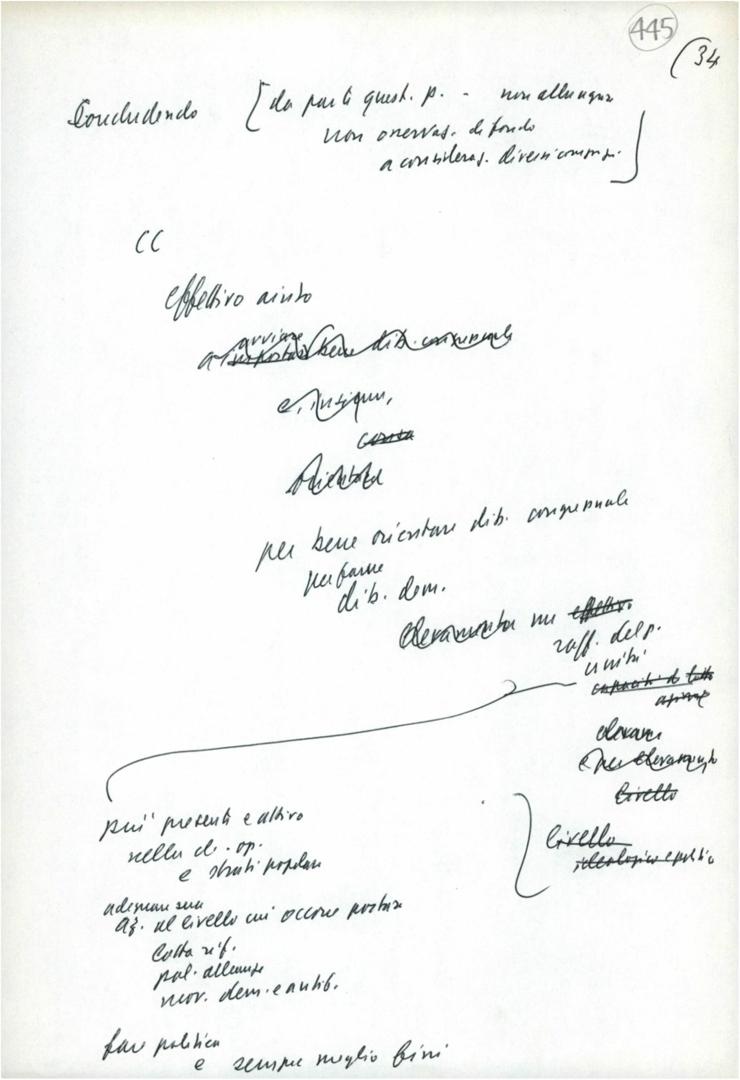 445
(34
Concludendo [da parti quest. p. - non allunga
non osservaz. di fondo
a consideraz. diversi comp.
CC
effettivo aiuto
a avviare bene dib. congressuale
e, insieme,
per bene orientare dib. congressuale
per farne
dib. dem.
elevamento effettivo
raff. del p.
unità
capacità di lotta
azione
elevare
e per elevarne
livello
livello
ideologico e politico
più presenti e attivo
nella cl. op.
e strati popolari
adeguare sua
az. al livello cui occorre portare
lotta rif.
pol. alleanze
mov. dem. e antif.
fare politica
e sempre meglio